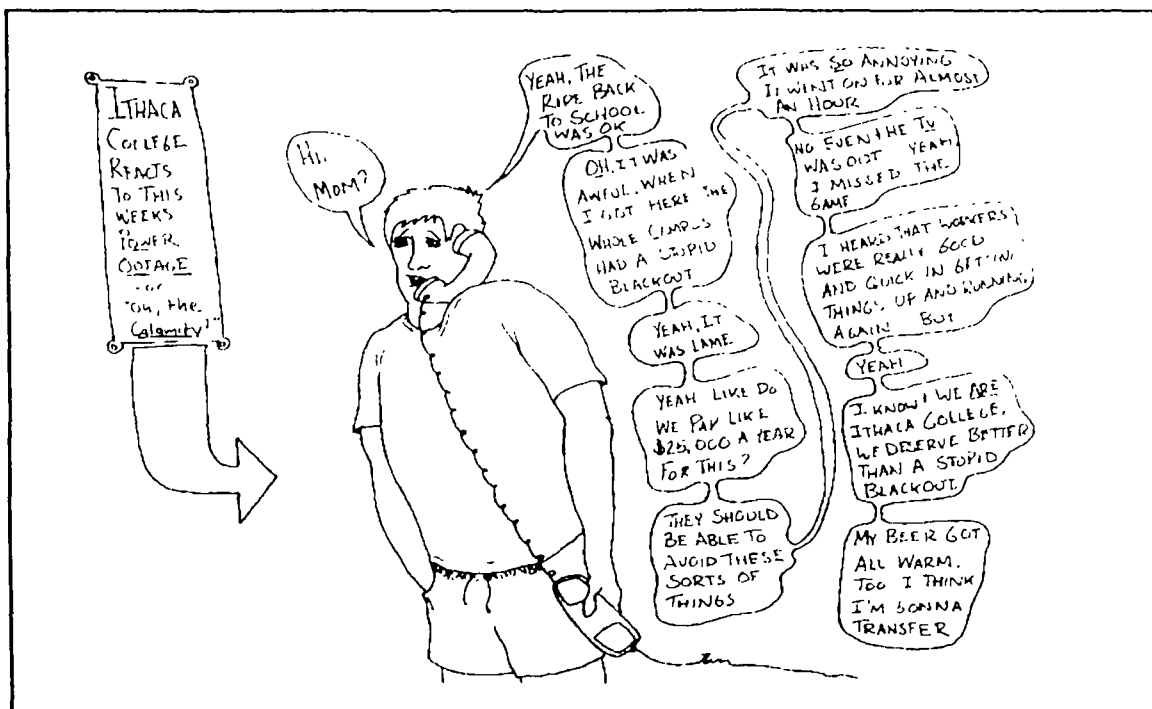 ITHACA
COLLEGE
REACTS
TO THIS
WEEKS
POWER
OUTAGE
-or-
"oh, the
Calamity!"
HI,
MOM?
YEAH, THE
RIDE BACK
TO SCHOOL
WAS OK
OH, IT WAS
AWFUL. WHEN
I GOT HERE THE
WHOLE CAMPUS
HAD A STUPID
BLACKOUT
YEAH, IT
WAS LAME
YEAH LIKE DO
WE PAY LIKE
$25,000 A YEAR
FOR THIS?
THEY SHOULD
BE ABLE TO
AVOID THESE
SORTS OF
THINGS
IT WAS SO ANNOYING
IT WENT ON FOR ALMOST
AN HOUR
NO EVEN THE TV
WAS OUT YEAH,
I MISSED THE
GAME
I HEARD THAT WORKERS
WERE REALLY GOOD
AND QUICK IN GETTIN'
THINGS UP AND RUNNING
AGAIN BUT
YEAH
I KNOW! WE ARE
ITHACA COLLEGE.
WE DESERVE BETTER
THAN A STUPID
BLACKOUT
MY BEER GOT
ALL WARM.
TOO I THINK
I'M GONNA
TRANSFER